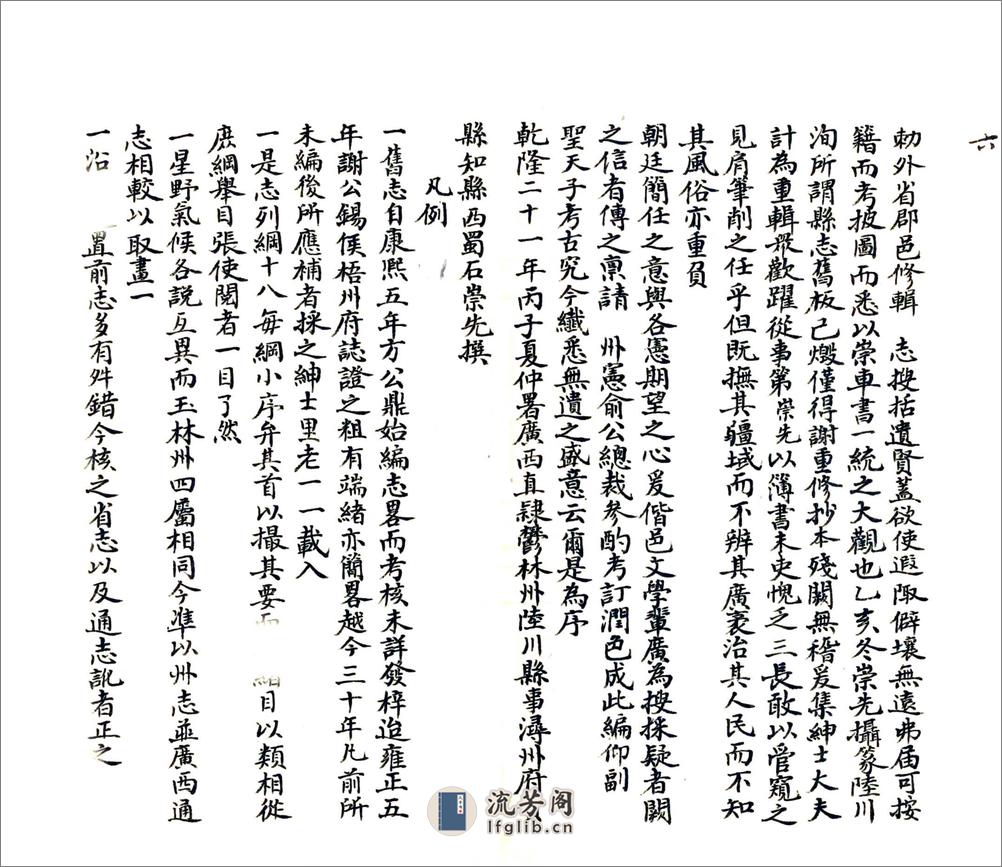 六
勅外省郡邑修輯　志搜括遺賢蓋欲使遐陬僻壤無遠弗届可按
籍而考披圖而悉以崇車書一統之大觀也乙亥冬崇先攝篆陸川
洵所謂縣志舊板已燬僅得謝重修抄本殘闕無稽爰集紳士大夫
計為重輯衆歡躍從事第崇先以簿書末吏愧乏三長敢以管窺之
見肩筆削之任乎但既撫其疆域而不辨其廣袤治其人民而不知
其風俗亦重負
朝廷簡任之意與各憲期望之心爰偕邑文學輩廣為搜採疑者闕
之信者傳之禀請　州憲俞公總裁參酌考訂潤色成此編仰副
聖天子考古究今纖悉無遺之盛意云爾是為序
乾隆二十一年丙子夏仲署廣西直隸鬱林州陸川縣事潯州府
縣知縣西蜀石崇先撰
凡例
一舊志自康熙五年方公鼎始編志畧而考核未詳發梓迨雍正五
年謝公錫侯梧州府誌證之粗有端緒亦簡畧越今三十年凡前所
未編後所應補者採之紳士里老一一載入
一是志列綱十八每綱小序弁其首以撮其要而　細目以類相從
庶綱舉目張使閱者一目了然
一星野氣候各説互異而玉林州四屬相同今準以州志並廣西通
志相較以取畫一
一沿　置前志多有舛錯今核之省志以及通志訛者正之
流芳阁
lfglib.cn